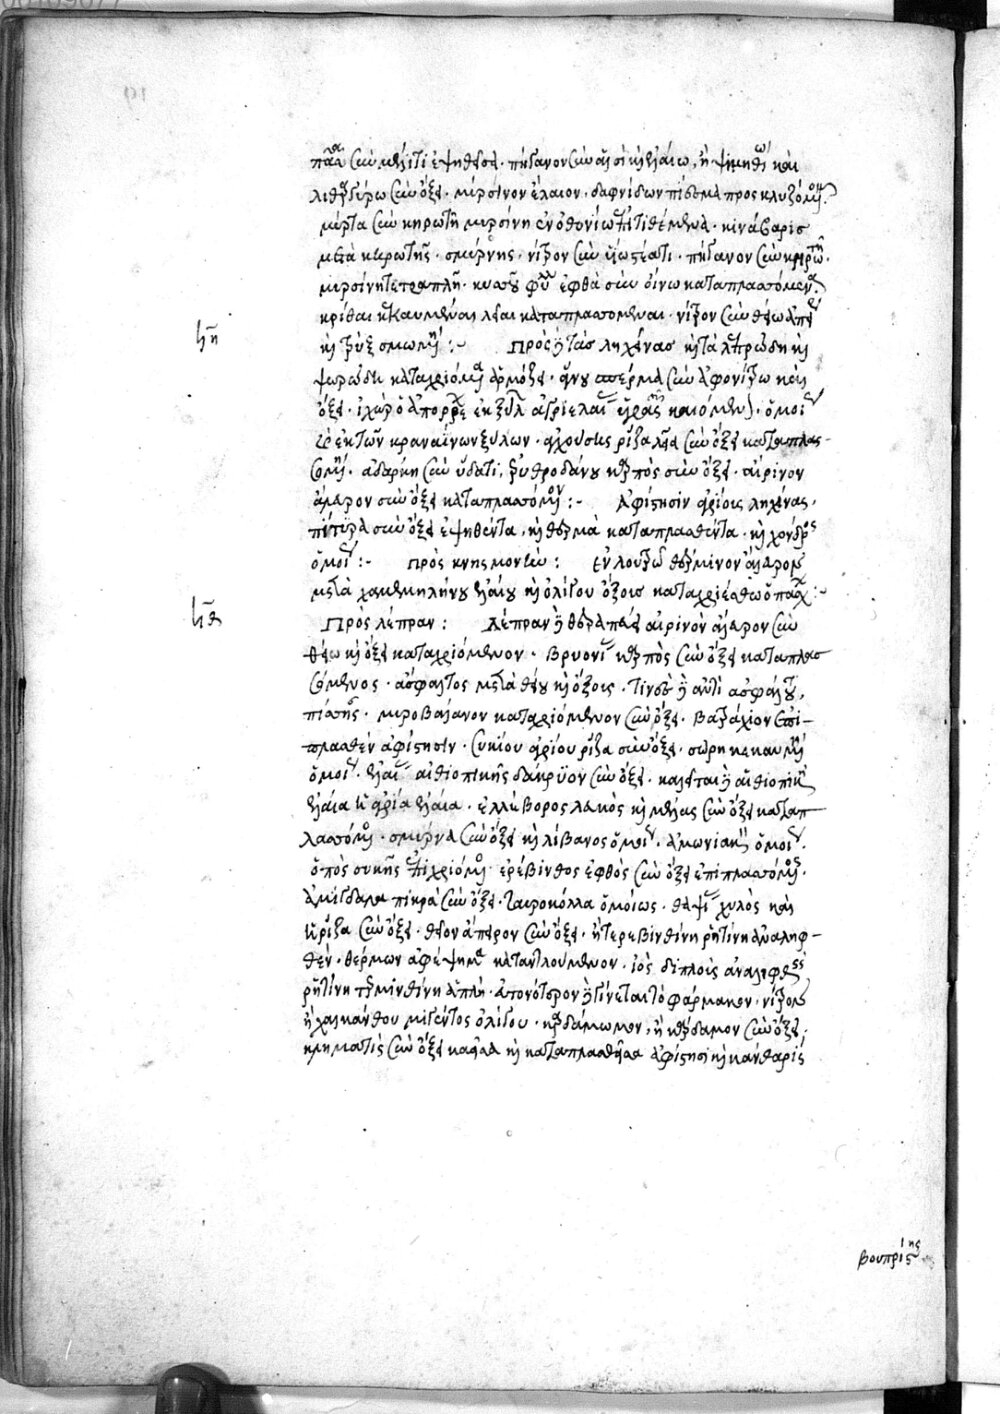 σὺν μέλιτι ἑψηθεῖσα · πήγανον σὺν ἁλσὶ καὶ ἐλαίω, ἢ ψιμυθίω καὶ
λιθαργύρω σὺν ὄξει · μύρσινον ἔλαιον · δαφνίδων προς
μύρτα σὺν κηρωτῆ μυρσίνη ἐν ὀθονίω ἐπιτιθέμενα · κινάβαρις
μετὰ κηρωτῆς · σμύρνης · νίτρον σὺν · πήγανον σὺν κηρωτῆ ·
μυρσίνη · κυάμου ἑφθὰ σὺν οἴνω καταπλασσόμενα
κριθαὶ κεκαυμέναι λεῖαι καταπλασσόμεναι · νίτρον σὺν θείω
καὶ :- Πρὸς τὰς λιχῆνας καὶ τὰ λεπρώδη καὶ
ψωρώδη καταχριόμενα ἁρμόζει · σπέρμα σὺν ἀφρονίτρω καὶ
ὄξει · ἰχὼρ ὁ ἀπορρέων ἐκ ξύλων ἀγριελαίας καιομένων · ὁμοίως
ὁ ἐκ τῶν κρανείνων ξύλων · ῥίζα λεῖα σὺν ὄξει καταπλασ-
σομένη · ἀδάρκη σὺν ὕδατι, ἐρυθροδάνου καρπὸς σὺν ὄξει · αἴρινον
ἄλευρον σὺν ὄξει καταπλασσόμενον :- ἀφίστησιν ἀγρίους λιχῆνας,
πίτυρα σὺν ὄξει ἑψηθέντα, καὶ θερμὰ καταπλασθέντα · καὶ χόνδρος
ὁμοίως :- Πρὸς κνησμονὴν : ἐν λουτρῶ θέρμινον ἄλευρον
μετὰ χαμαιμηλίνου ἐλαίου καὶ ὀλίγου ὄξους καταχριέσθω ὁ πάσχων :-
Πρὸς λέπραν : Λέπραν θεραπεύει αἴρινον ἄλευρον σὺν
θείω καὶ ὄξει καταχριόμενον · βρυωνίας καρπὸς σὺν ὄξει καταπλασ
σόμενος · ἄσφαλτος μετὰ θείου καὶ ὄξους · τινὲς δὲ ἀντὶ ἀσφάλτου,
πίσσης · μυροβάλανον καταχριόμενον σὺν ὄξει · βατράχιον ἐπι-
πλασθὲν ἀφίστησιν · σικύου ἀγρίου ῥίζα σὺν ὄξει · κεκαυμένη
ὁμοίως · ἐλαίας αἰθιοπικῆς δάκρυον σὺν ὄξει · καλεῖται δὲ αἰθιοπικὴ
ἐλαία ἡ ἀγρία ἐλαία · ἑλλέβορος λευκὸς καὶ μέλας σὺν ὄξει καταπ
λασσόμενος · σμύρνα σὺν ὄξει καὶ λίβανος ὁμοίως · ἀμωνιακὸν ὁμοίως ·
ὀπὸς συκῆς ἐπιχριόμενος · ἐρέβινθος ἑφθὸς σὺν ὄξει ἐπιπλασσόμενος ·
ἀμύγδαλα πικρὰ σὺν ὄξει · ταυροκόλλα ὁμοίως · θαψίας χυλὸς καὶ
ἡ ῥίζα σὺν ὄξει · θεῖον ἄπυρον σὺν ὄξει · ἢ τερεβινθίνη ῥητίνη ἀναληφ-
θέν · θέρμων ἀφέψημα καταντλούμενον · ἰὸς διπλοῦς ἀναληφθεὶς
ῥητίνη τερμινθίνη ἁπλῆ · εὐτονώτερον δὲ γίνεται τὸ φάρμακον · νίτρου
ἢ χαλκάνθου μιγέντος ὀλίγου · καρδάμωμον, ἢ κάρδαμον σὺν ὄξει ·
κληματὶς σὺν ὄξει καὶ καταπλασθεῖσα ἀφίστησι καὶ κανθαρίς
βουπρίστης